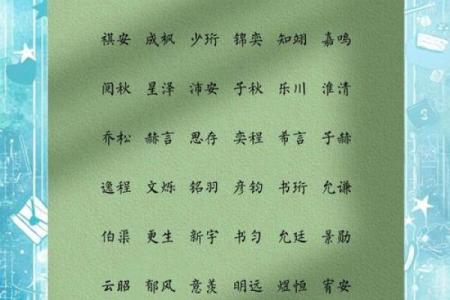 祺安 成枫 少珩 锦奕 知翊 嘉鸣
阅秋 星泽 沛安 于秋 乐川 淮清
乔松 赫言 思存 奕程 希言 于赫
逸程 文烁 铭羽 彦钧 书珩 允谦
伯渠 更生 新宇 书匀 允廷 景勋
云昭 郁风 意羡 明远 煜恒 宥安